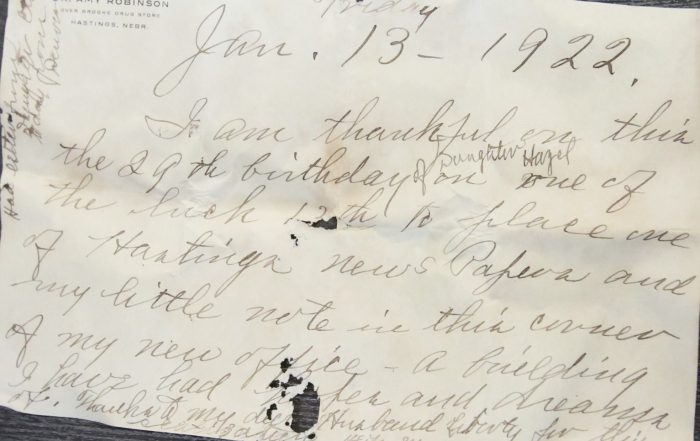 AMY ROBINSON
OVER BROOKE DRUG STORE
HASTINGS, NEBR.
Friday
Jan. 13 - 1922.
I am thankful on this
the 29th birthday of Daughter Hazel on one of
the luck 13th to place one
of Hastings news Papers and
my little note in this corner
of my new office - a building
I have had and dreams
of. Thanks to my dear Husband for this
Had letter from
daughter